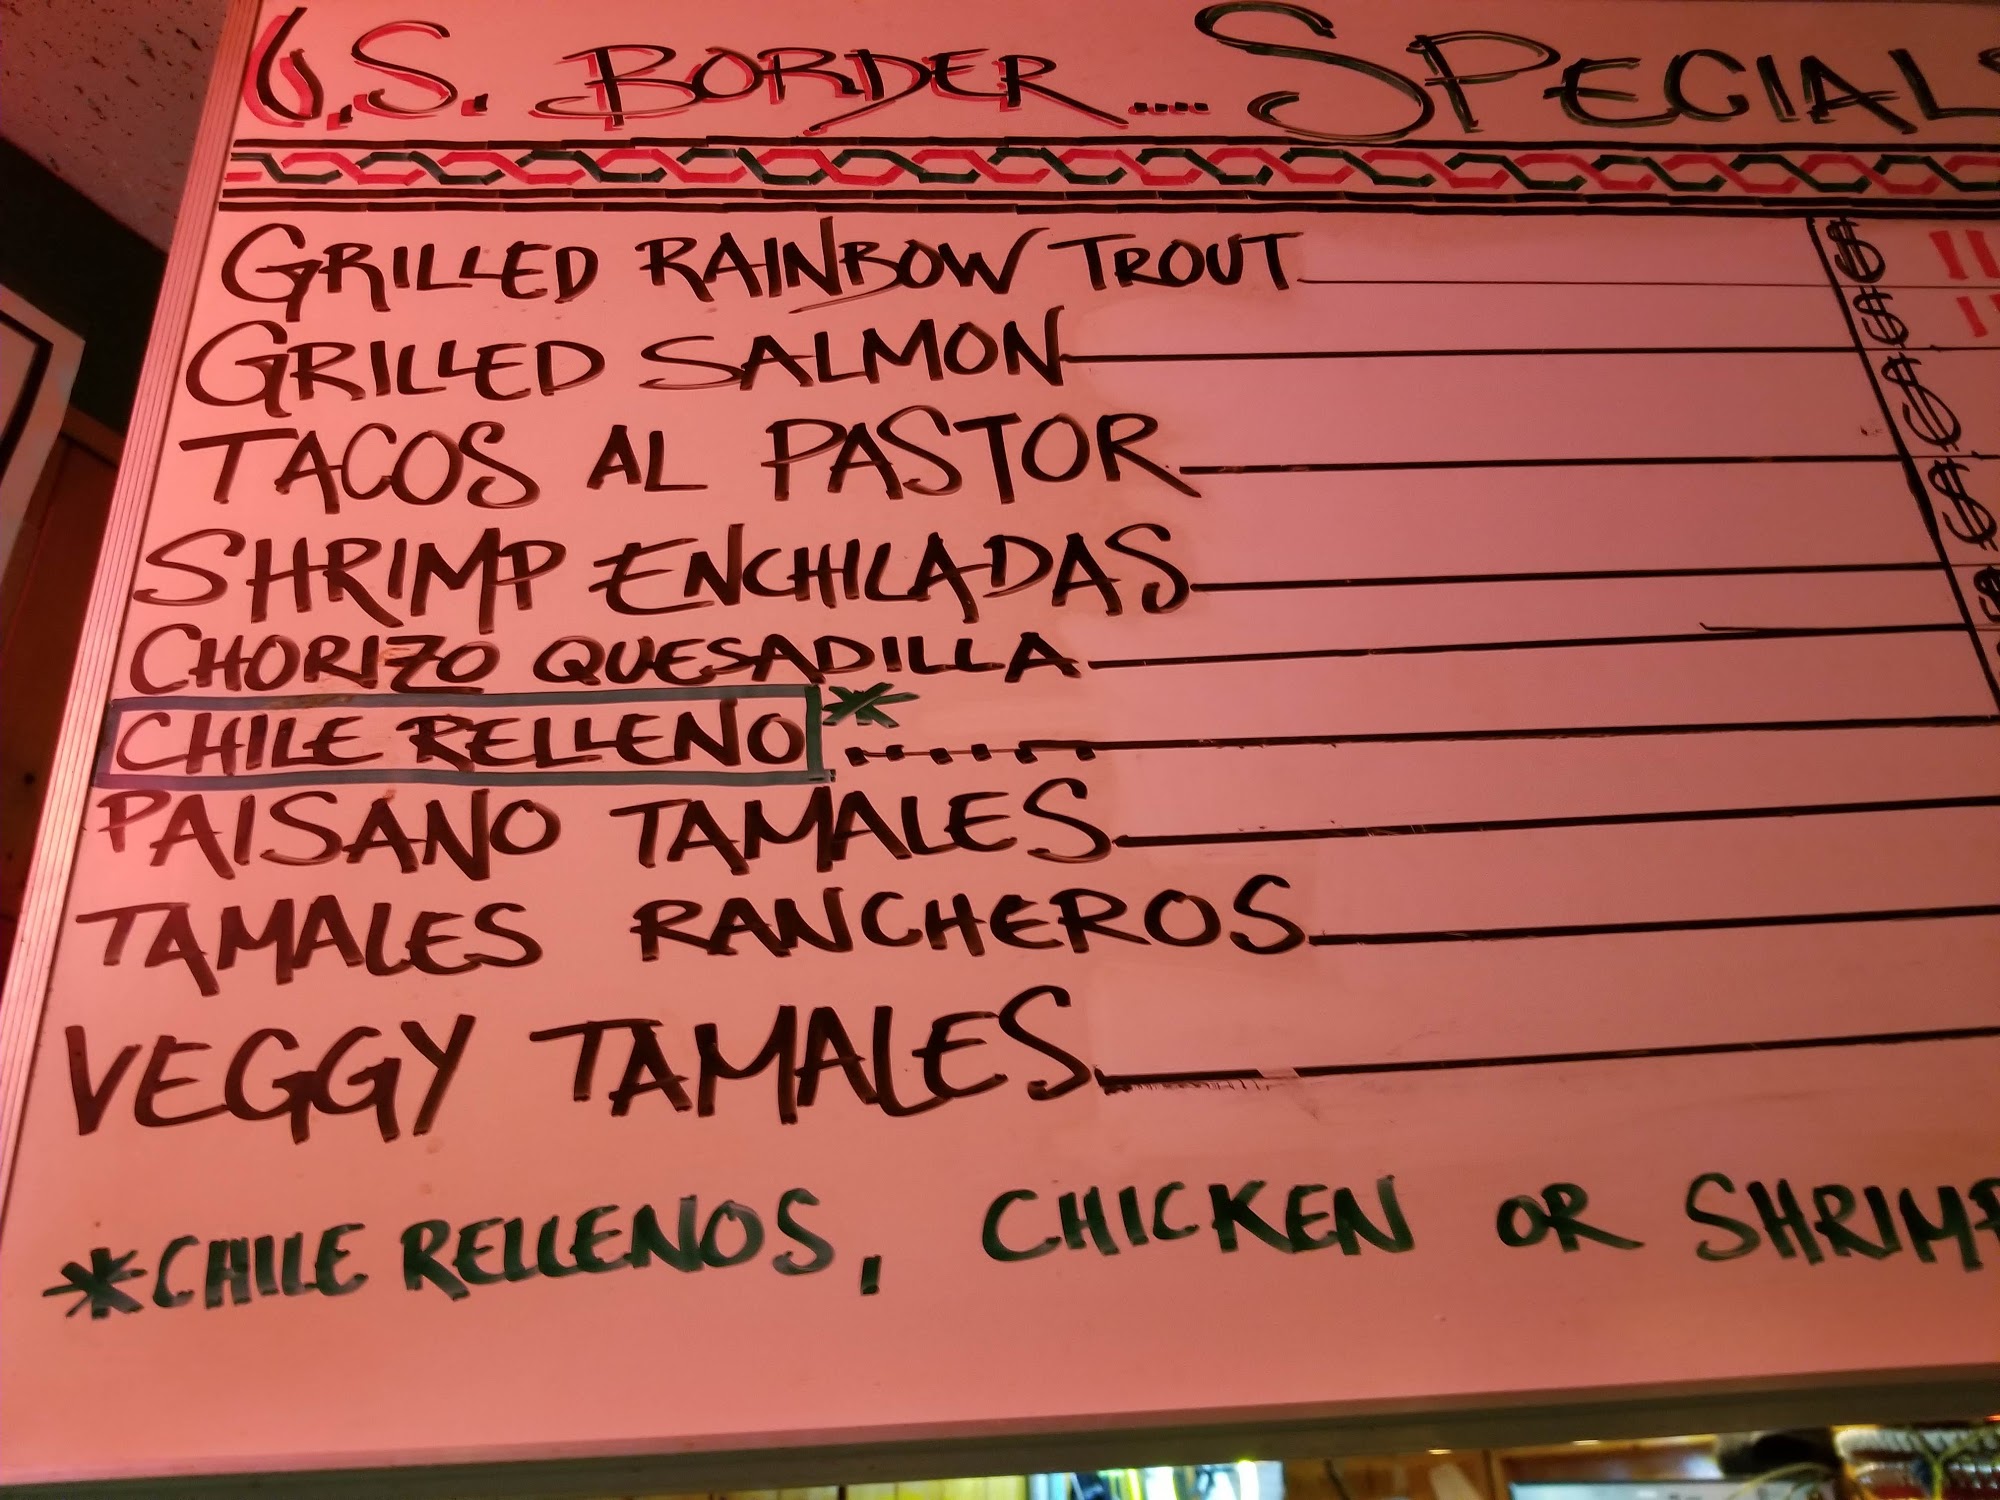 U.S. BORDER.... SPECIALS
GRILLED RAINBOW TROUT $ 11
GRILLED SALMON $
TACOS AL PASTOR $
SHRIMP ENCHILADAS $
CHORIZO QUESADILLA $
CHILE RELLENO*.......
PAISANO TAMALES
TAMALES RANCHEROS
VEGGY TAMALES
*CHILE RELLENOS, CHICKEN OR SHRIMP